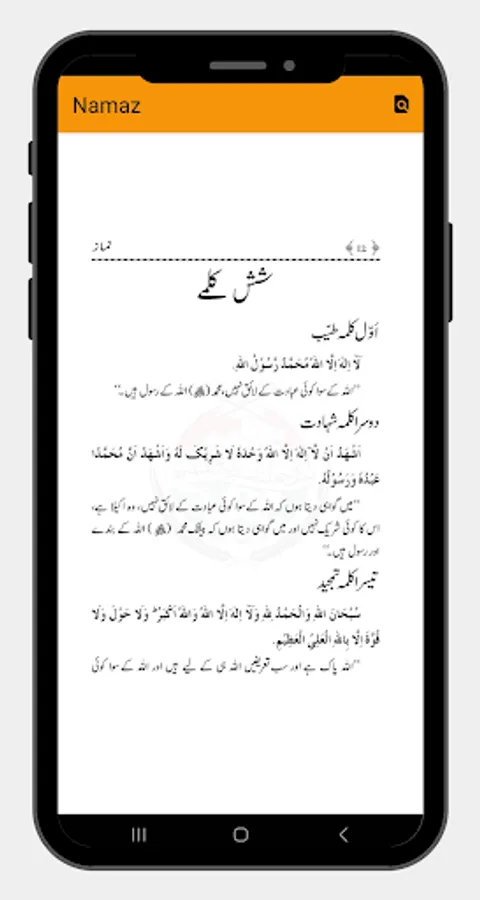 Namaz
نماز ﴿12﴾
شش کلمے
اوّل کلمہ طیّب
لَآ اِلٰهَ اِلَّا اللهُ مُحَمَّدٌ رَّسُوْلُ اللهِ.
"اللہ کے سوا کوئی عبادت کے لائق نہیں، محمد (ﷺ) اللہ کے رسول ہیں۔"
دوسرا کلمہ شہادت
اَشْهَدُ اَنْ لَّآ اِلٰهَ اِلَّا اللهُ وَحْدَهٗ لَا شَرِيْکَ لَهٗ وَاَشْهَدُ اَنَّ مُحَمَّدًا
عَبْدُهٗ وَرَسُوْلُهٗ.
"میں گواہی دیتا ہوں کہ اللہ کے سوا کوئی عبادت کے لائق نہیں، وہ اکیلا ہے،
اس کا کوئی شریک نہیں اور میں گواہی دیتا ہوں کہ بیشک محمد (ﷺ) اللہ کے بندے
اور رسول ہیں۔"
تیسرا کلمہ تمجید
سُبْحَانَ اللهِ وَالْحَمْدُ لِلّٰهِ وَلَآ اِلٰهَ اِلَّا اللهُ وَاللهُ اَکْبَرُ ؕ وَلَا حَوْلَ وَلَا
قُوَّةَ اِلَّا بِاللهِ الْعَلِيِّ الْعَظِيْمِ.
"اللہ پاک ہے اور سب تعریفیں اللہ ہی کے لیے ہیں اور اللہ کے سوا کوئی